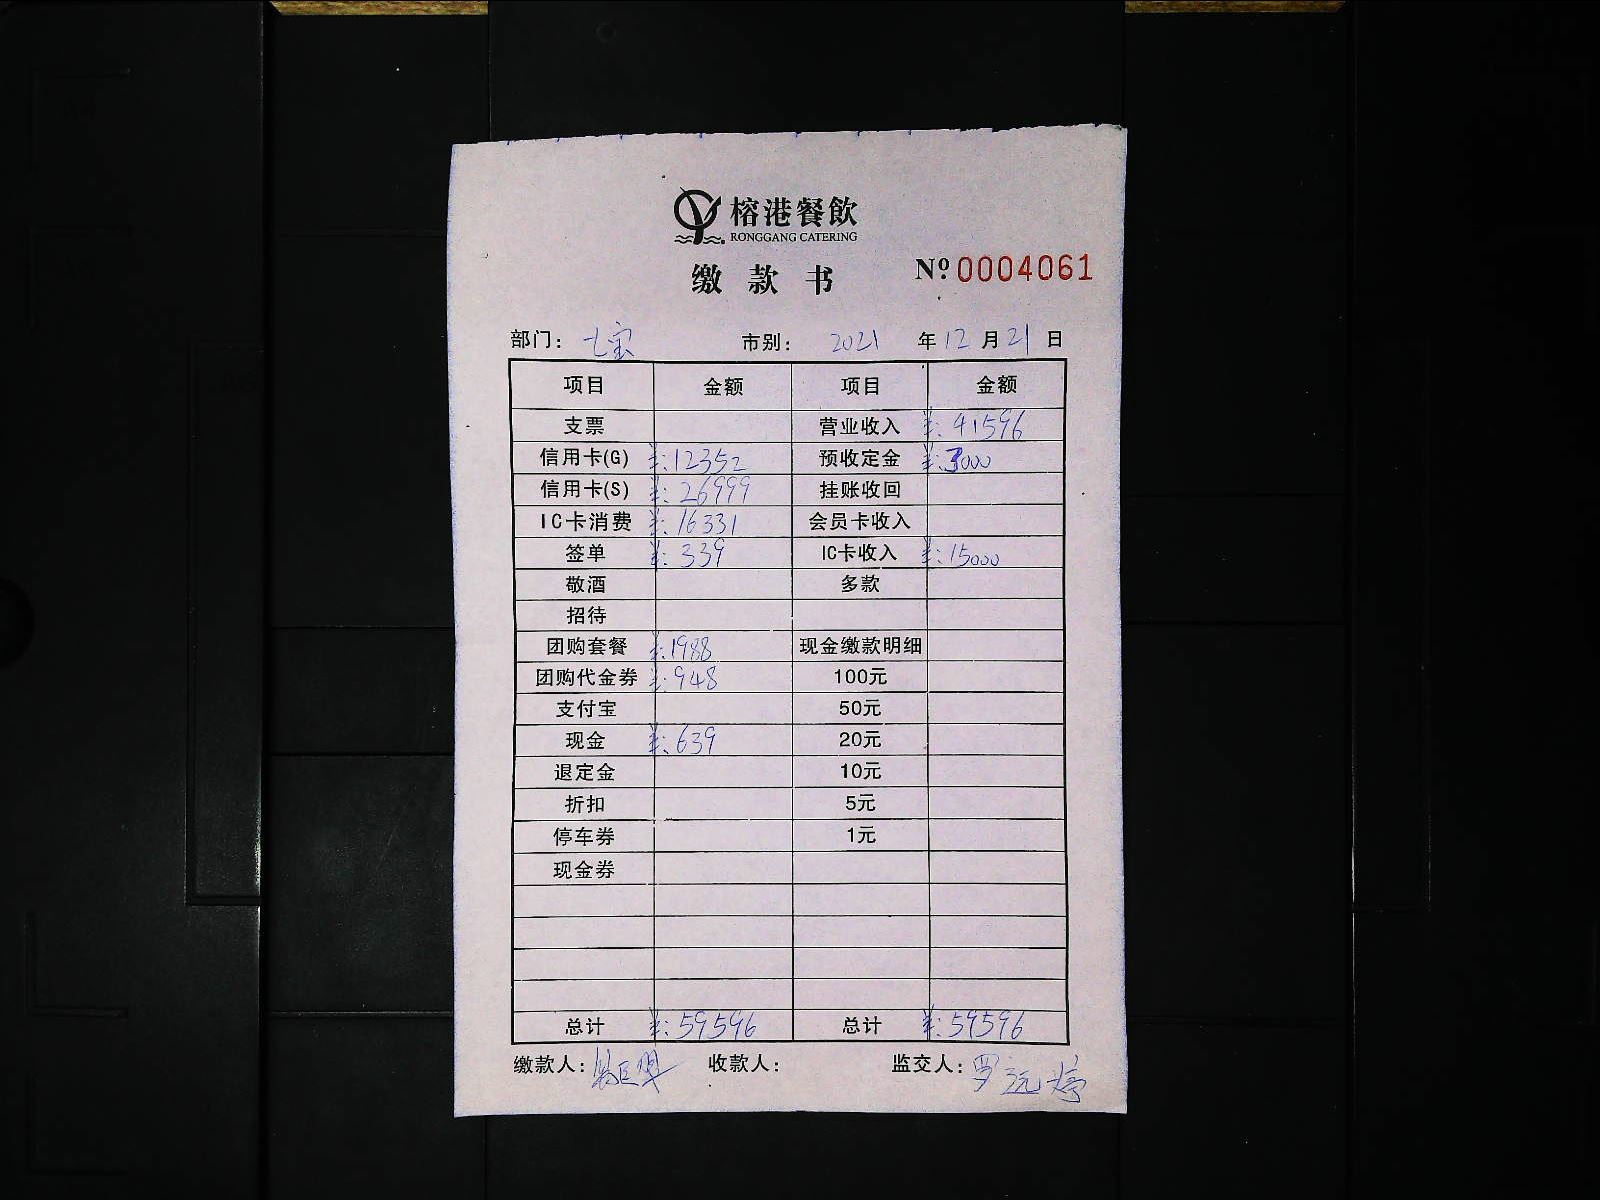 榕港餐飲
RONGGANG CATERING
缴款书 Nº 0004061
部门: 七宝 市别: 2021 年 12 月 21 日
项目 金额 项目 金额
支票 营业收入 ¥: 41596
信用卡(G) ¥: 12352 预收定金 ¥: 3000
信用卡(S) ¥: 26999 挂账收回
IC卡消费 ¥: 16331 会员卡收入
签单 ¥: 339 IC卡收入 ¥: 15000
敬酒 多款
招待
团购套餐 ¥: 1988 现金缴款明细
团购代金券 ¥: 948 100元
支付宝 50元
现金 ¥: 639 20元
退定金 10元
折扣 5元
停车券 1元
现金券
总计 ¥: 59596 总计 ¥: 59596
缴款人: 收款人: 监交人: 罗沅婷